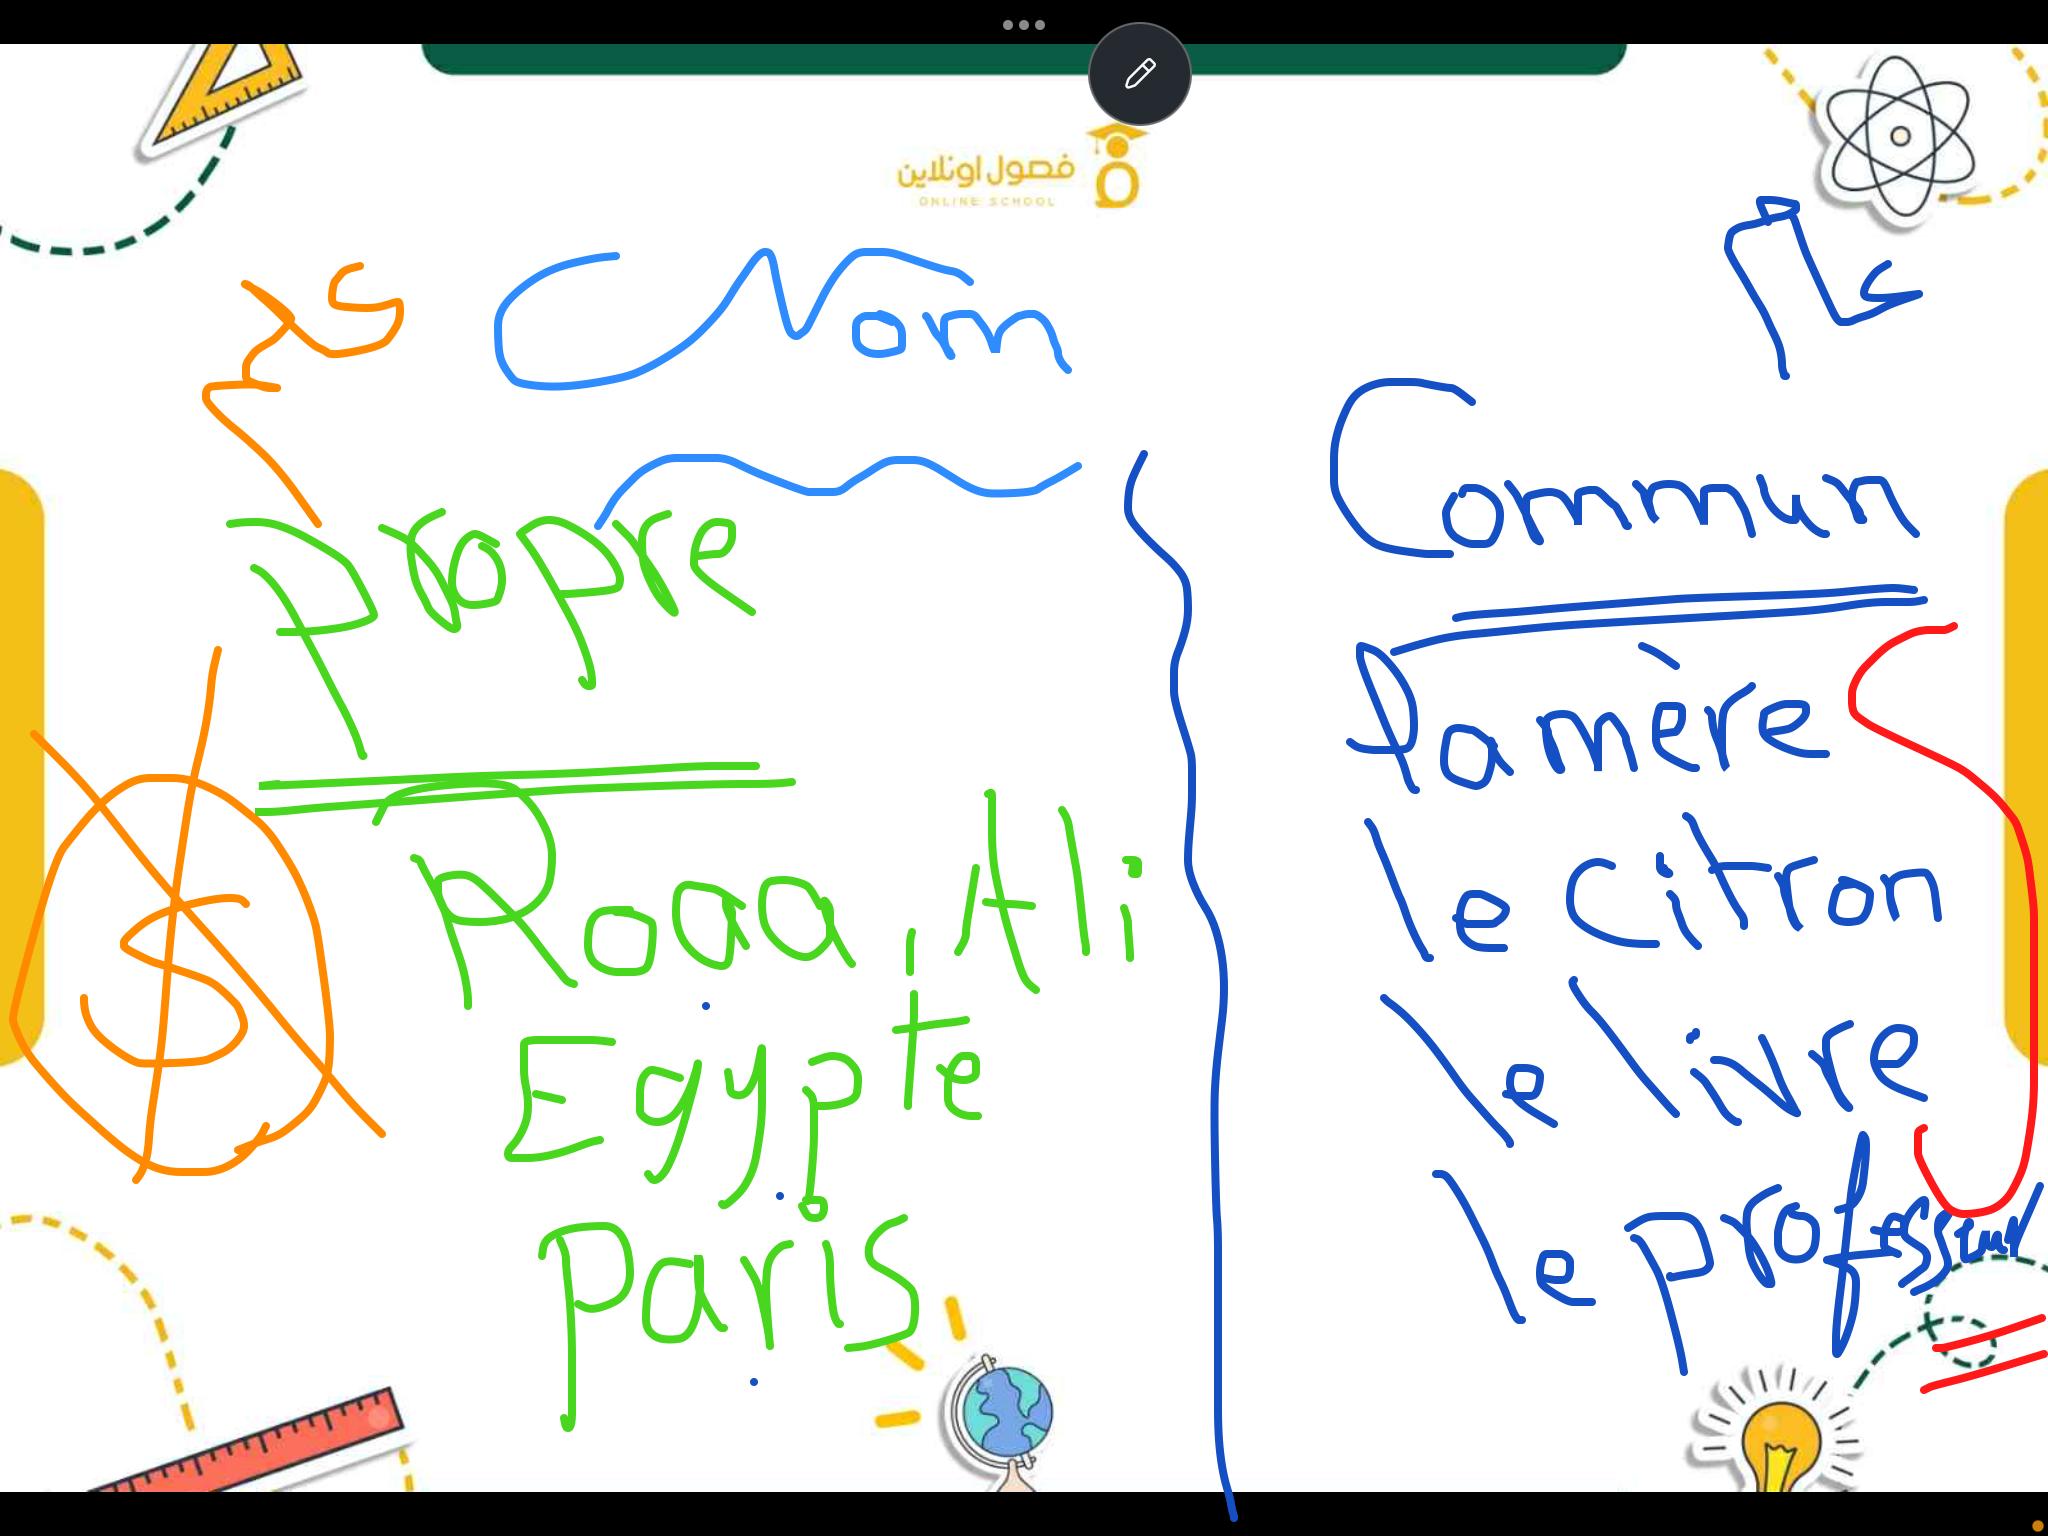 فصول اونلاين
ONLINE SCHOOL
Nom
Propre
Roaa, Ali
Egypte
Paris
S
عام
Commun
la mère
le citron
le livre
le professeur